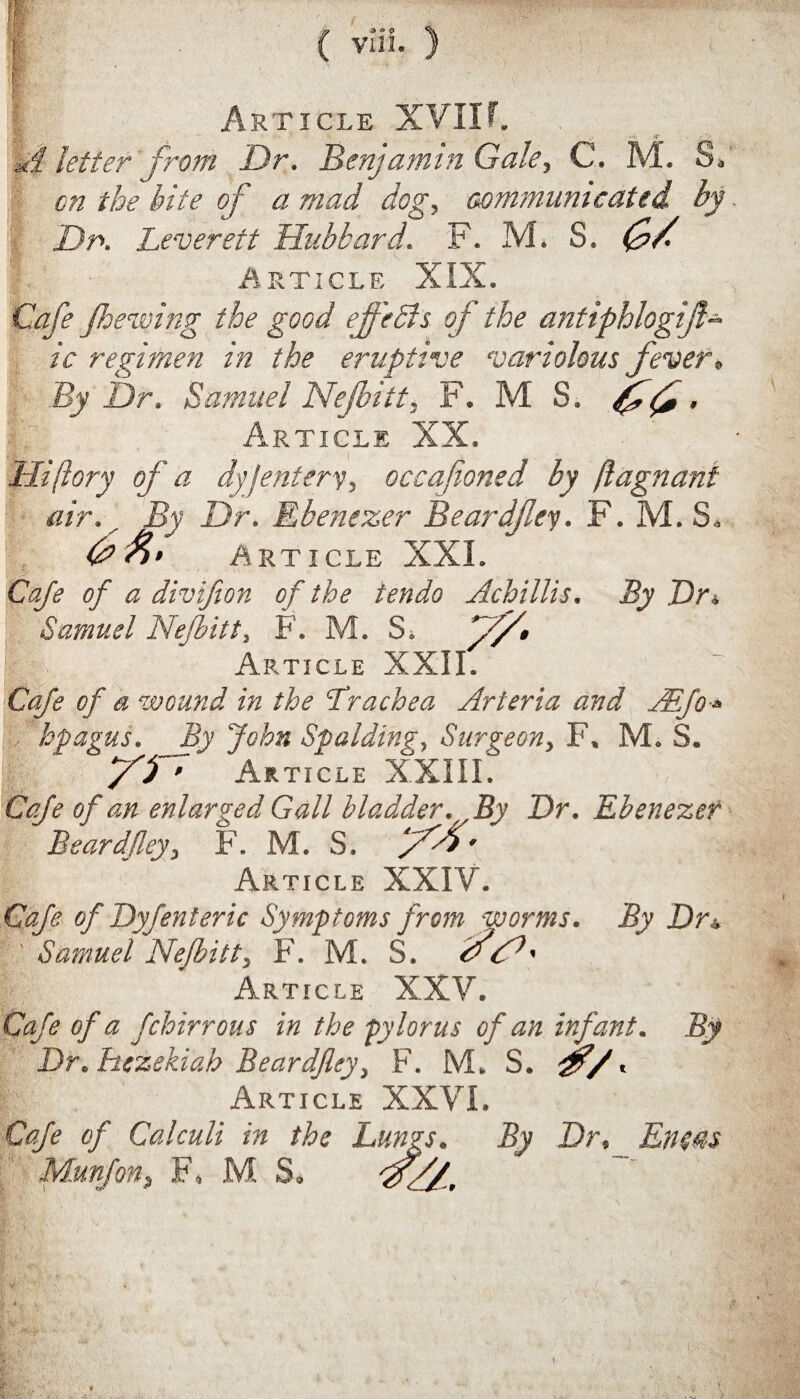 ( viii. )
ARTICLE XVIII.
A letter from Dr. Benjamin Gale, C. M. S.
on the bite of a mad dog, communicated by
Dr. Leverett Hubbard. F. M. S. 61.
ARTICLE XIX.
Caſe ſhewing the good effects of the antiphlogiſt-
ic regimen in the eruptive variolous fever.
By Dr. Samuel Neſbitt, F. M S. 66.
ARTICLE XX.
Hiſtory of a dyſentery, occaſioned by ſtagnant
air. By Dr. Ebenezer Beardſley. F. M. S.
68. ARTICLE XXI.
Caſe of a diviſion of the tendo Achillis. By Dr.
Samuel Neſbitt, F. M. S. 71.
ARTICLE XXII.
Caſe of a wound in the Trachea Arteria and Æſo-
hpagus. By John Spalding, Surgeon, F. M. S.
75. ARTICLE XXIII.
Caſe of an enlarged Gall bladder. By Dr. Ebenezer
Beardſley, F. M. S. 78.
ARTICLE XXIV.
Caſe of Dyſenteric Symptoms from worms. By Dr.
Samuel Neſbitt, F. M. S. 80.
ARTICLE XXV.
Caſe of a ſchirrous in the pylorus of an infant. By
Dr. Hezekiah Beardſley, F. M. S. 81.
ARTICLE XXVI.
Caſe of Calculi in the Lungs. By Dr. Eneas
Munſon, F. M S.